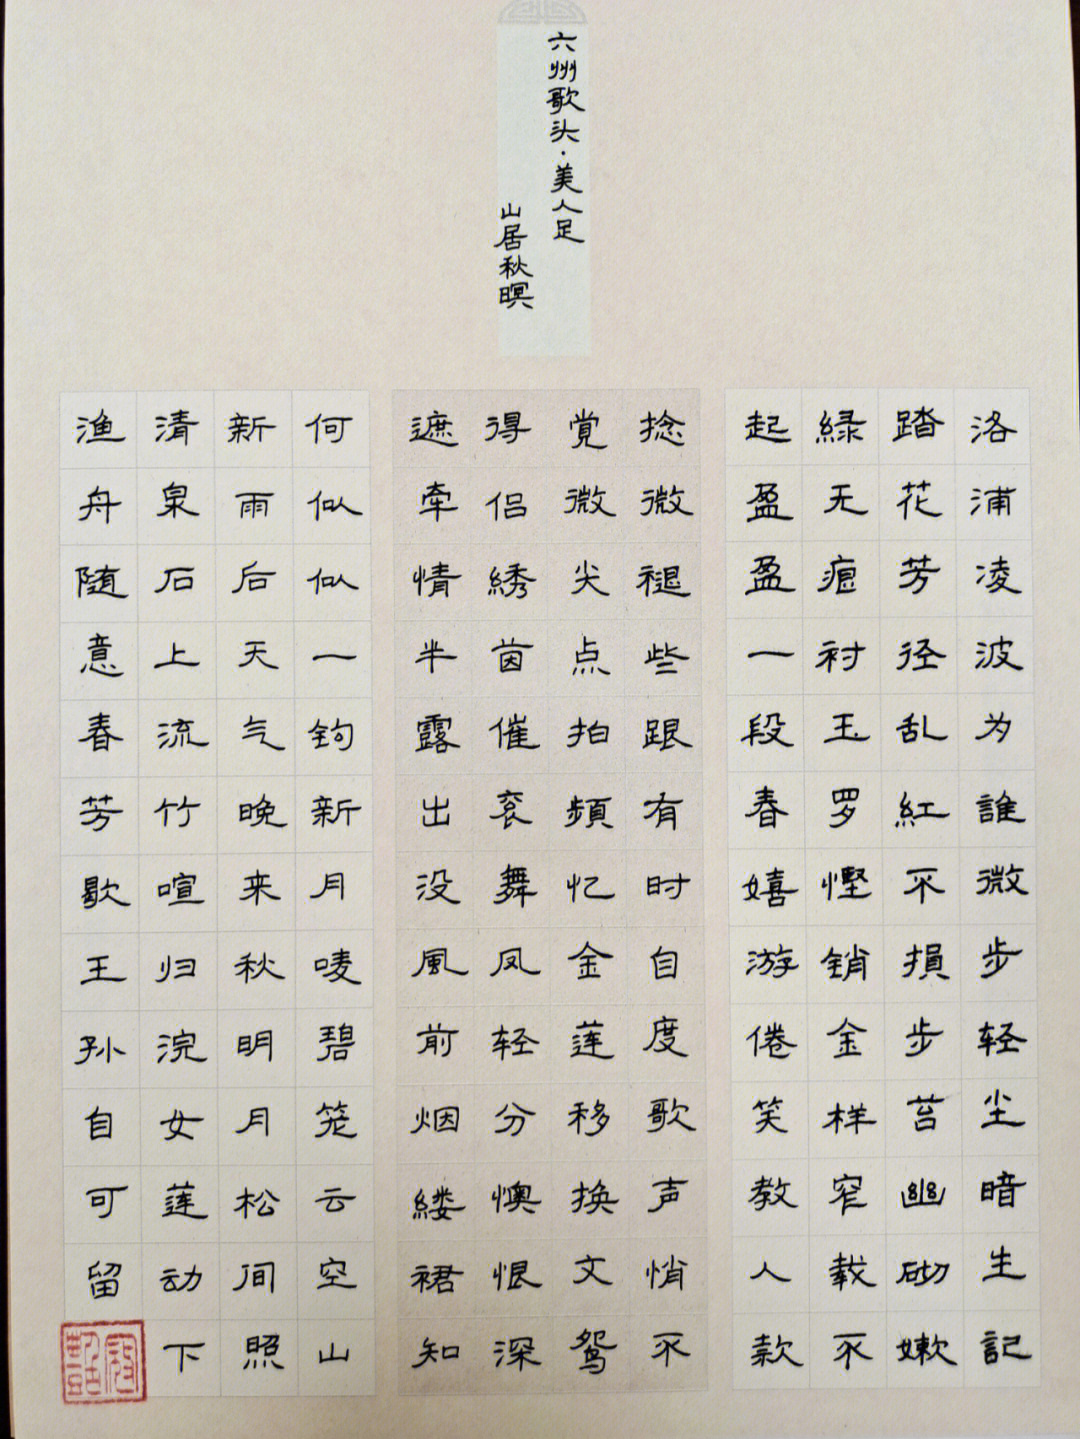 六州歌头·美人足
山居秋暝
洛浦凌波为誰微步轻尘暗生記
踏花芳径乱紅不損步苔幽砌嫩
緑无痕衬玉罗慳銷金样窄载不
起盈盈一段春嬉游倦笑教人款
捻微褪些跟有时自度歌声悄不
覚微尖点拍頻忆金莲移换文鸳
得侣綉茵催衮舞凤轻分懊恨深
遮牵情半露出没風前烟縷裙知
何似似一钩新月唛碧笼云空山
新雨后天气晚来秋明月松间照
清泉石上流竹喧归浣女莲动下
渔舟随意春芳歇王孙自可留